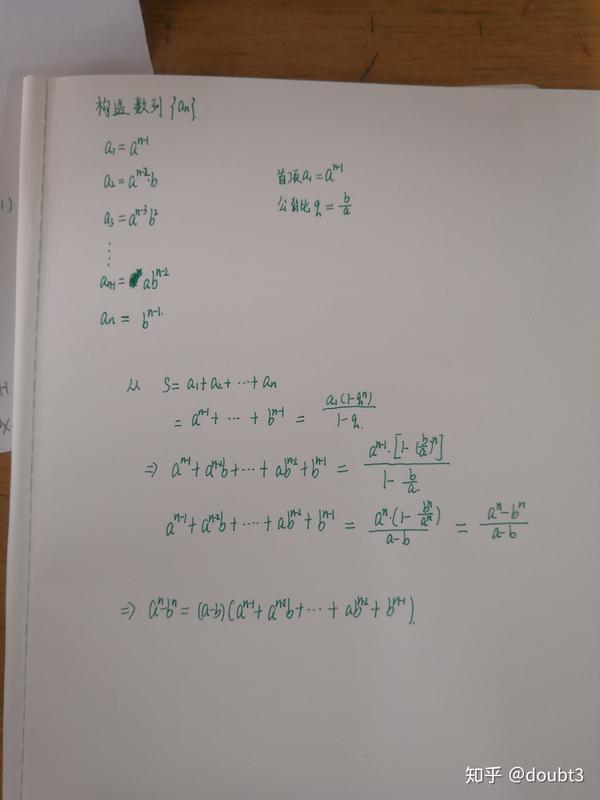 构造数列{aₙ}
a₁=aⁿ⁻¹
a₂=aⁿ⁻²·b
a₃=aⁿ⁻³b²
⋮
aₙ₋₁= abⁿ⁻²
aₙ= bⁿ⁻¹.
首项a₁=aⁿ⁻¹
公比q=b/a
从 S=a₁+a₂+⋯+aₙ
=aⁿ⁻¹+⋯+bⁿ⁻¹=a₁(1-qⁿ)/(1-q)
⇒ aⁿ⁻¹+aⁿ⁻²b+⋯+abⁿ⁻²+bⁿ⁻¹=aⁿ⁻¹·[1-(b/a)ⁿ]/(1-b/a)
aⁿ⁻¹+aⁿ⁻²b+⋯+abⁿ⁻²+bⁿ⁻¹=aⁿ·(1-bⁿ/aⁿ)/(a-b)=(aⁿ-bⁿ)/(a-b)
⇒ aⁿ-bⁿ=(a-b)(aⁿ⁻¹+aⁿ⁻²b+⋯+abⁿ⁻²+bⁿ⁻¹).
知乎 @doubt3